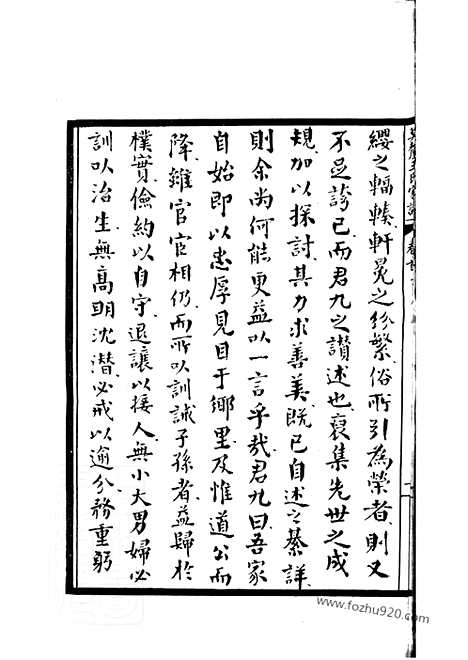 纓之輻輳軒冕之紛繁俗所引為榮者則又
不足誇已而君九之讚述也裒集先世之成
規加以探討其力求善美既已自述之綦詳
則余尚何能更益以一言乎哉君九曰吾家
自始即以忠厚見目于鄉里及惟道公而
降雖官宦相仍而所以訓誡子孫者益歸於
樸實儉約以自守退讓以接人無小大男婦必
訓以治生無高明沈潛必戒以逾分務重躬
www.fozhu920.com